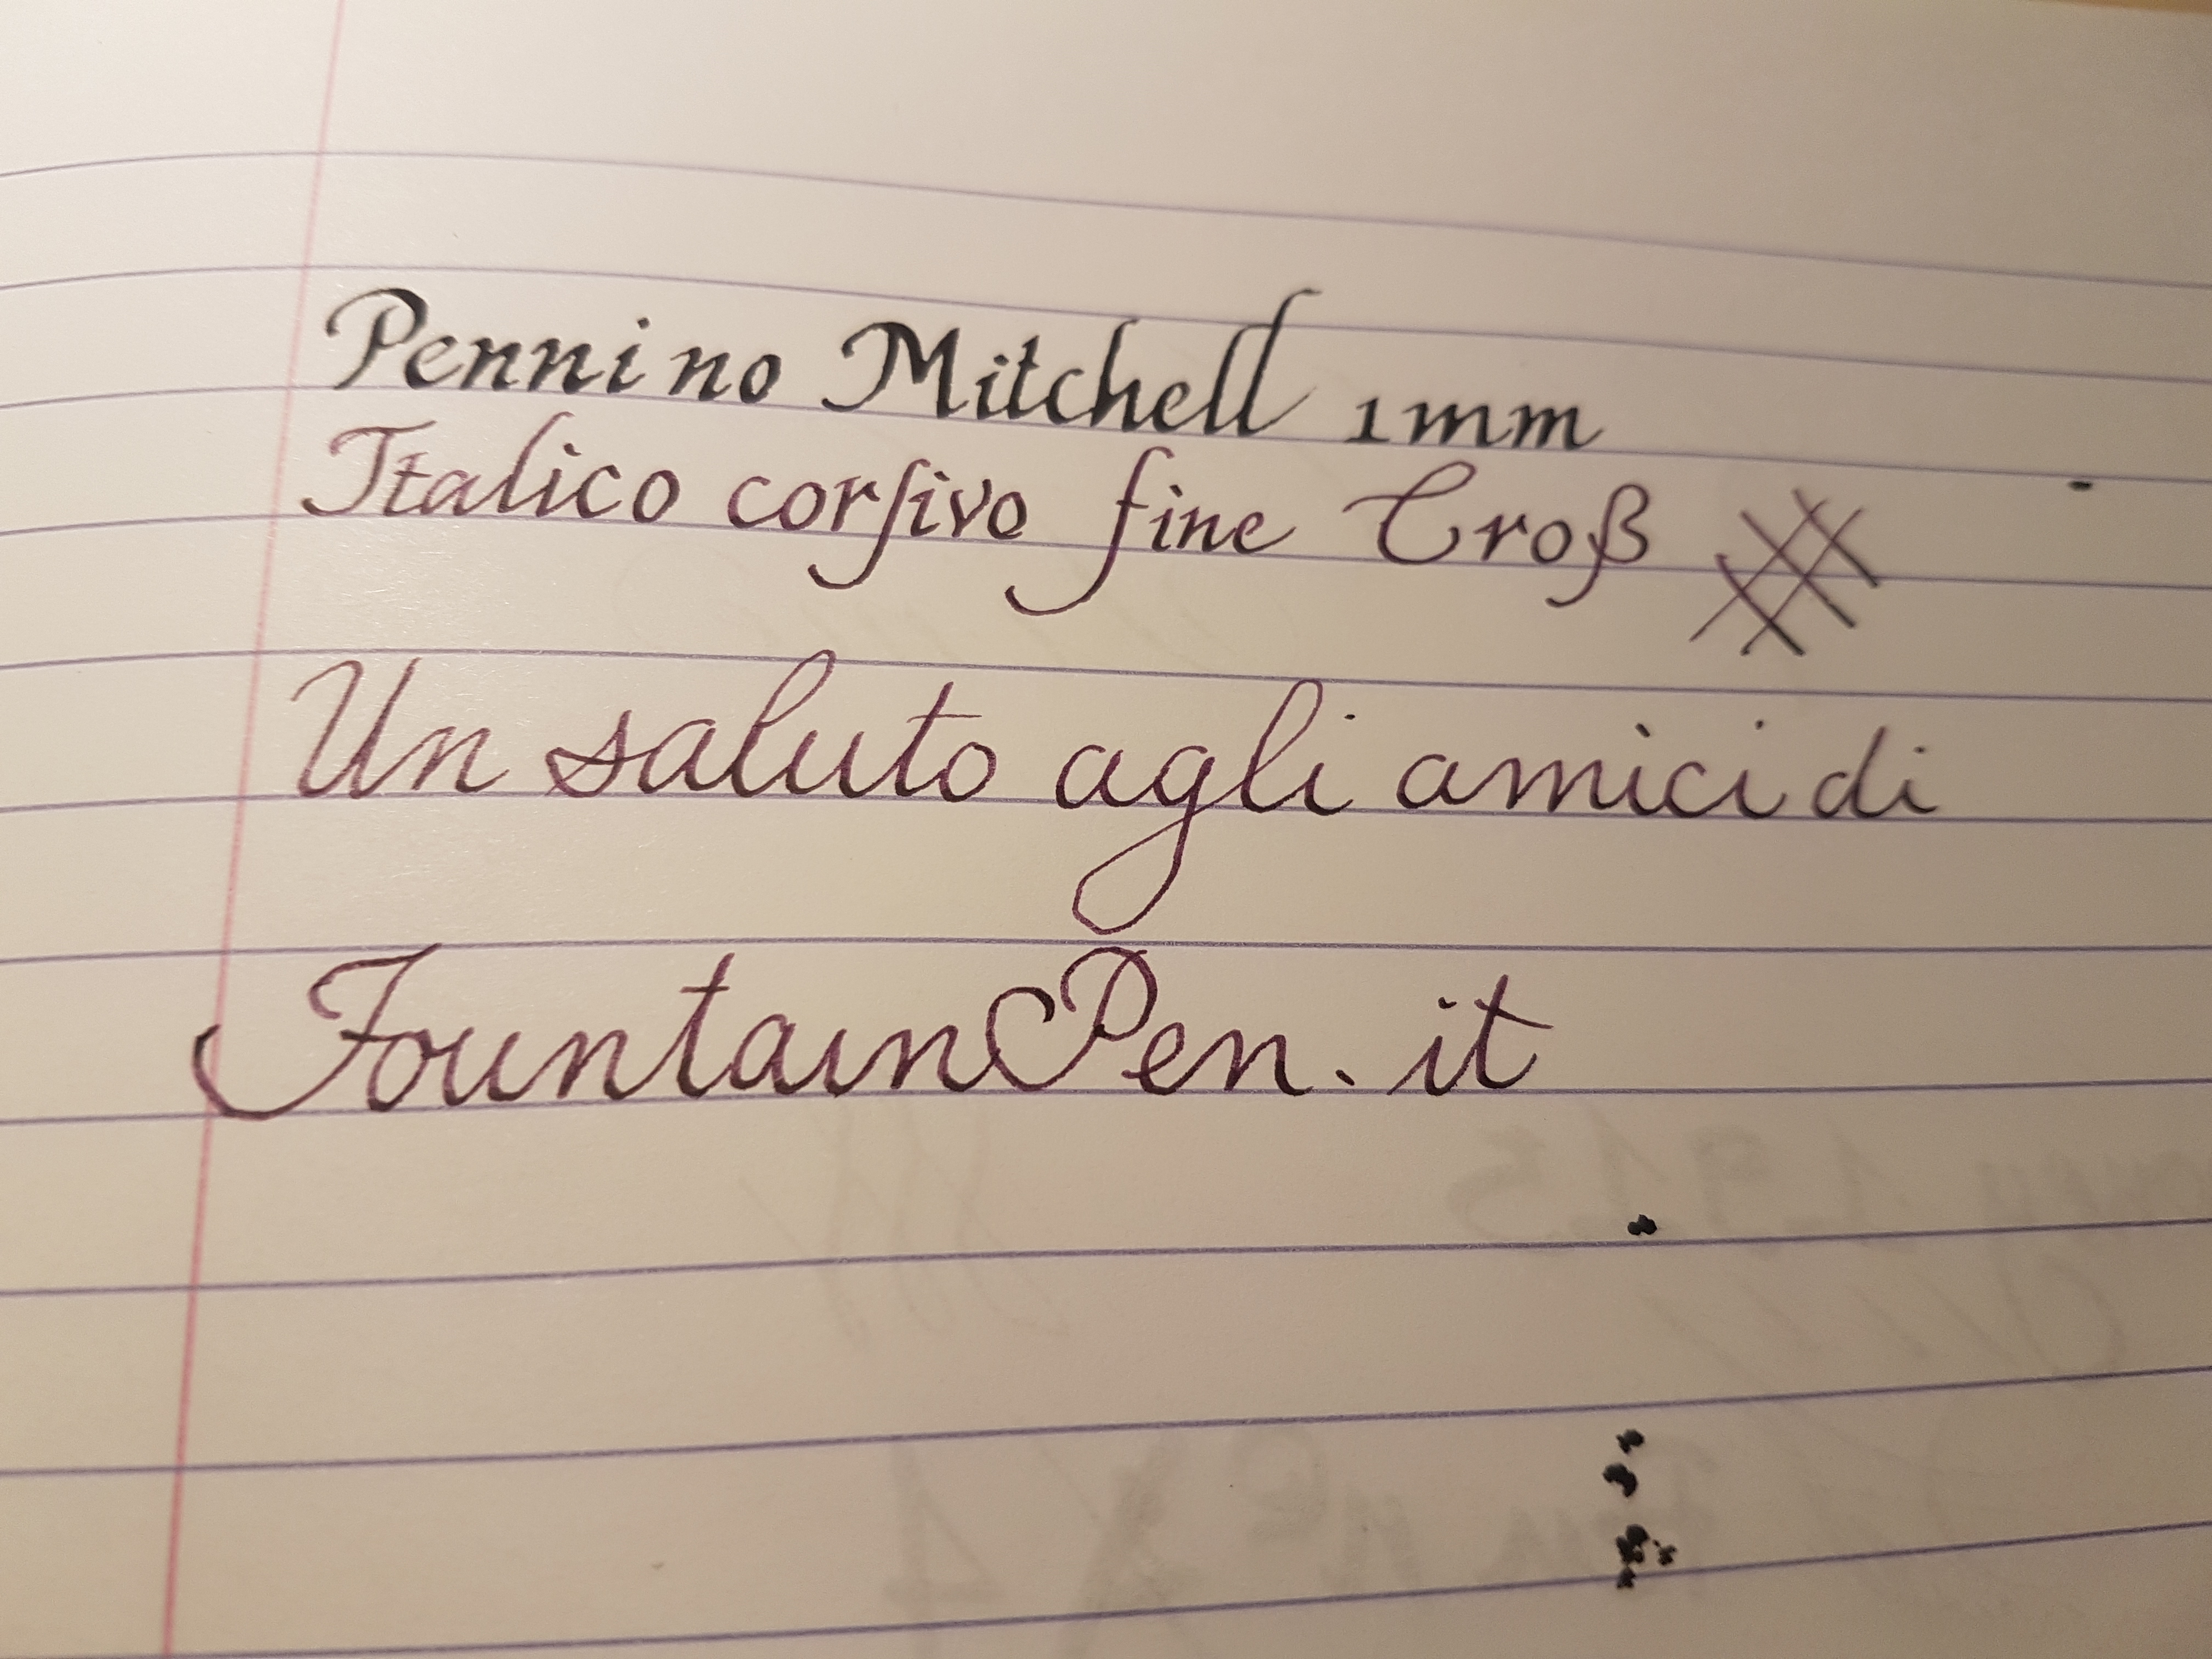 Pennino Mitchell 1mm
Italico corſivo fine Croß
Un saluto agli amici di
FountainPen.it